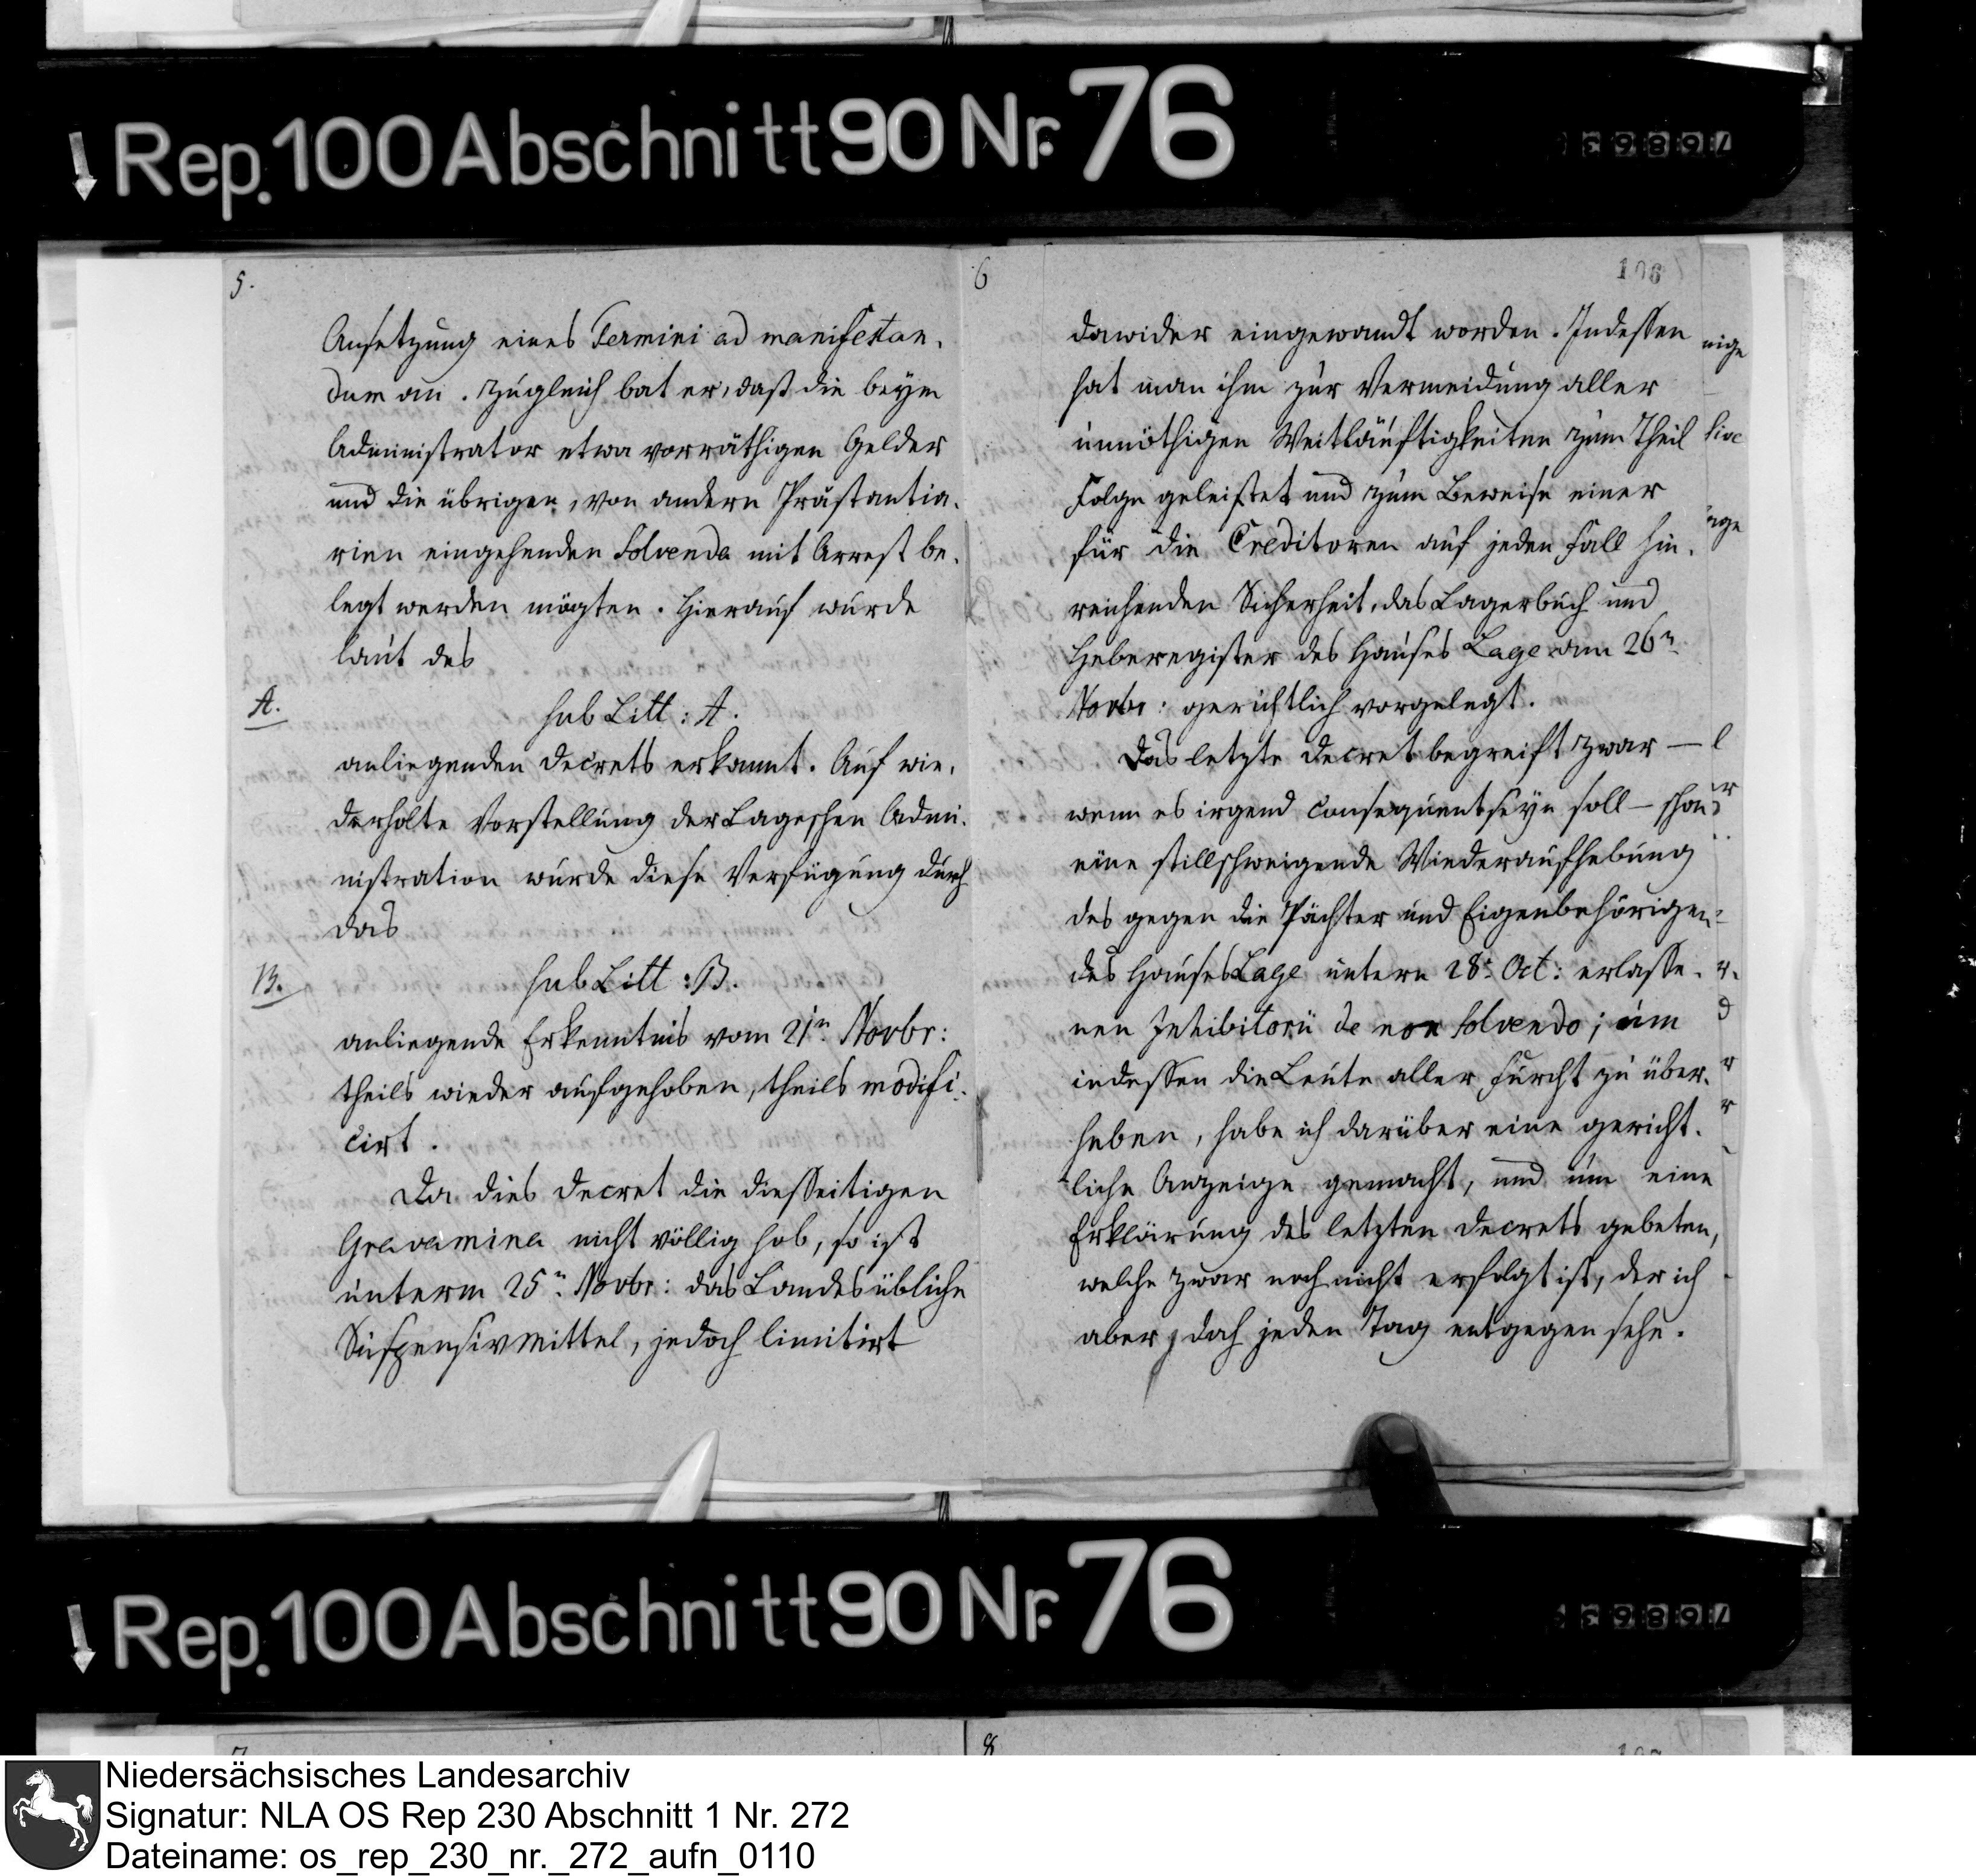 Rep. 100 Abschnitt 90 Nr. 76
76863
5.
Ansetzung eines Termini ad manifestan-
dum an. Zugleich bat er, daß die beym
Administrator etwa vorräthigen Gelder
und die übrigen, von andern Prästantia-
rien eingehenden Solvenda mit Arrest be-
legt werden mögten. Hierauf wurde
laut des
A.
sub Litt: A.
anliegenden Decrets erkannt. Auf wie-
derholte Vorstellung der Lageschen Admi-
nistration wurde diese Verfügung durch
das
B.
sub Litt: B.
anliegende Erkenntnis vom 21n Novbr:
theils wieder aufgehoben, theils modifi-
cirt.
Da dies Decret die diesseitigen
Gravamina nicht völlig hob, so ist
unterm 25n Novbr: das Landesübliche
Suspensivmittel, jedoch limitirt
6
106
dawider eingewandt worden. Indessen
hat man ihm zur Vermeidung aller
unnöthigen Weitläuftigkeiten zum Theil
Folge geleistet und zum Beweise einer
für die Creditoren auf jeden Fall hin-
reichenden Sicherheit, das Lagerbuch und
Heberegister des Hauses Lage am 26n
Novbr: gerichtlich vorgelegt.
Das letzte Decret begreift zwar —
wenn es irgend consequent seyn soll — schon
eine stillschweigende Wiederaufhebung
des gegen die Pächter und Eigenbehörigen
des Hauses Lage untern 28n Oct: erlasse-
nen Inhibitorii de non solvendo; um
indessen die Leute aller Furcht zu über-
heben, habe ich darüber eine gericht-
liche Anzeige gemacht, und um eine
Erklärung des letzten Decrets gebeten,
welche zwar noch nicht erfolgt ist, der ich
aber doch jeden Tag entgegen sehe.
Rep. 100 Abschnitt 90 Nr. 76
76863
7
8
107
Niedersächsisches Landesarchiv
Signatur: NLA OS Rep 230 Abschnitt 1 Nr. 272
Dateiname: os_rep_230_nr._272_aufn_0110